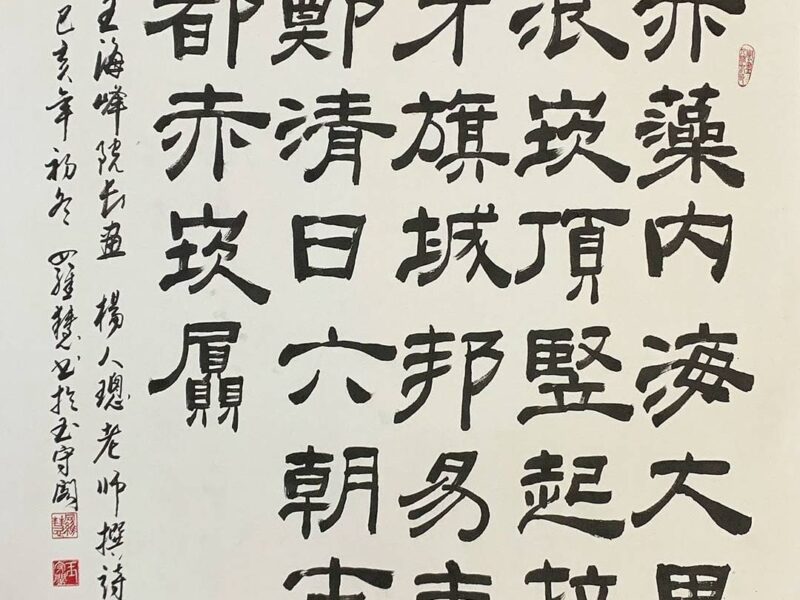 藻內海大
浪崁頂竪起
牙旗城邦易
鄭清日六朝
都赤崁屭
王海峰院长畫 楊人璁老师撰詩
己亥年初冬 羅慧书於玉守阁